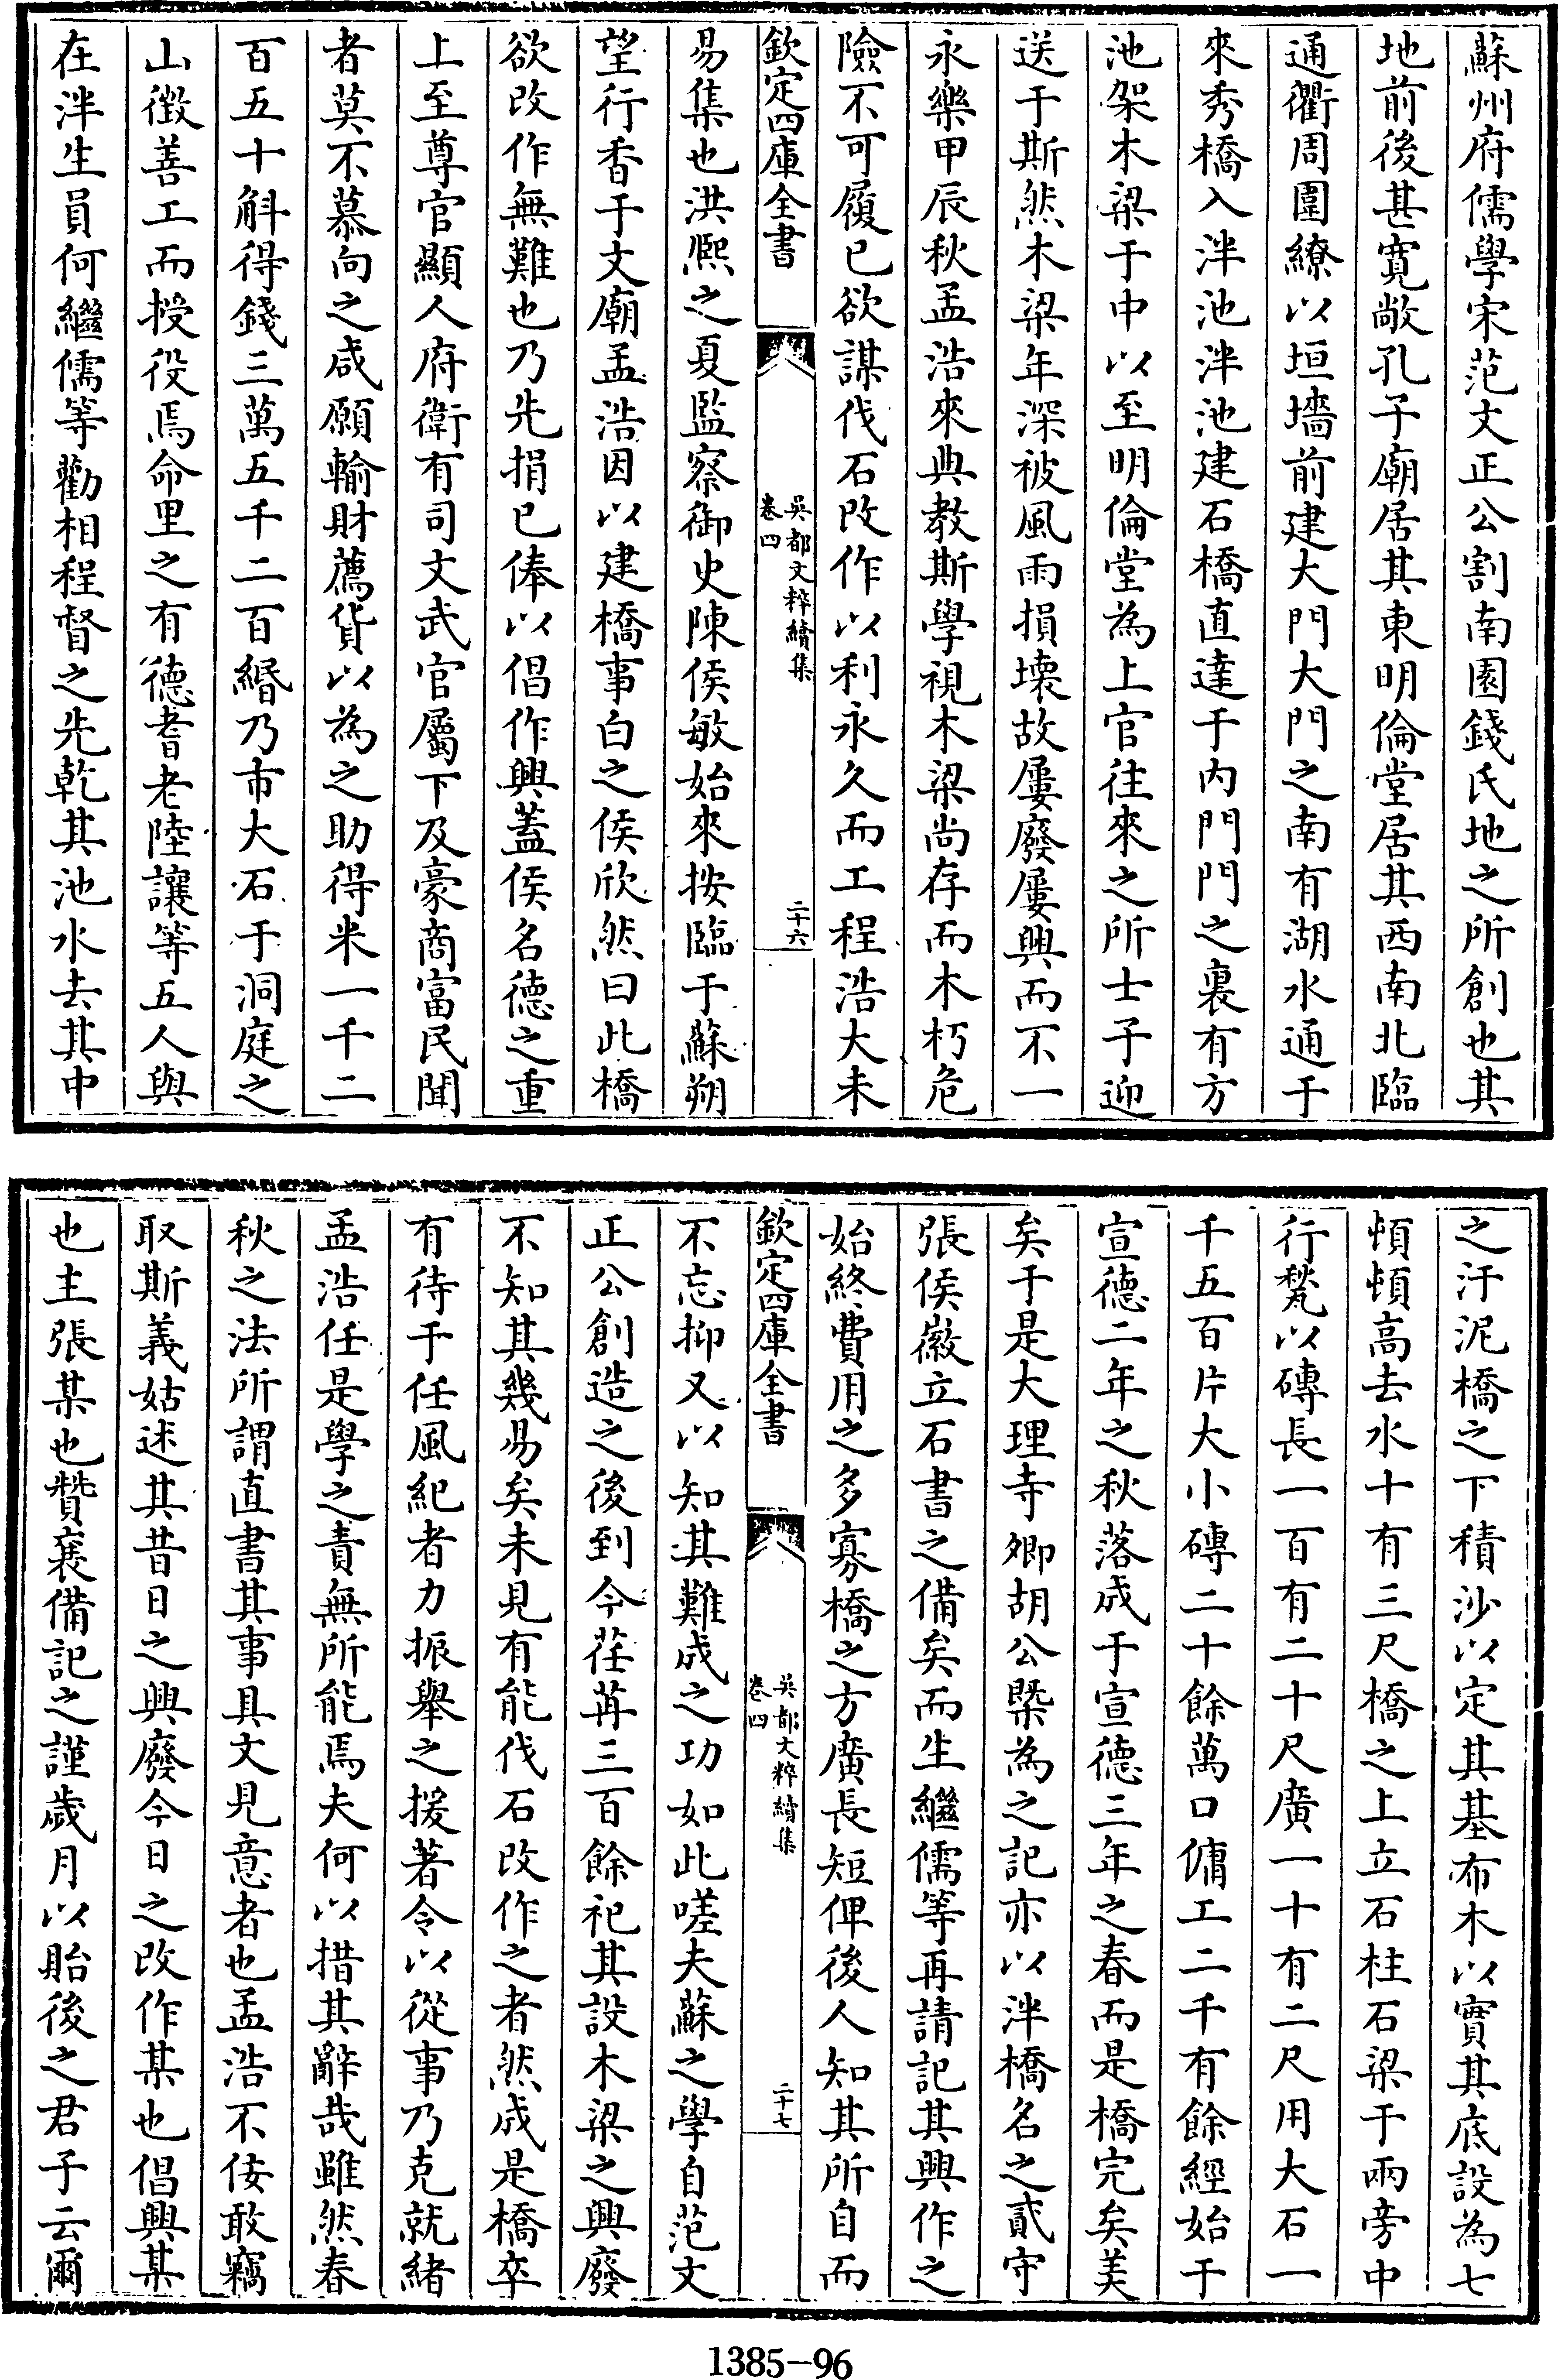 蘇州府儒學宋范文正公割南園錢氏地之所創也其
地前後甚寛敞孔子廟居其東明倫堂居其西南北臨
通衢周圍繚以垣墻前建大門大門之南有湖水通于
來秀橋入泮池泮池建石橋直達于内門門之裏有方
池架木梁于中以至明倫堂為上官往來之所士子迎
送于斯然木梁年深被風雨損壊故屢廢屢興而不一
永樂甲辰秋孟浩來典教斯學視木梁尚存而木朽危
險不可履已欲謀伐石改作以利永久而工程浩大未
欽定四庫全書
吳都文粹續集
卷四
二十六
易集也洪熈之夏監察御史陳侯敏始來按臨于蘇朔
望行香于文廟孟浩因以建橋事白之侯欣然曰此橋
欲改作無難也乃先捐已俸以倡作興蓋侯名德之重
上至尊官顯人府衛有司文武官屬下及豪商富民聞
者莫不慕向之咸願輸財薦貨以為之助得米一千二
百五十斛得錢三萬五千二百緡乃市大石于洞庭之
山徴善工而授役焉命里之有德耆老陸讓等五人與
在泮生員何繼儒等勸相程督之先乾其池水去其中
之汙泥橋之下積沙以定其基布木以實其底設為七
㨲㨲高去水十有三尺橋之上立石柱石梁于兩旁中
行甃以磚長一百有二十尺廣一十有二尺用大石一
千五百片大小磚二十餘萬口傭工二千有餘經始于
宣德二年之秋落成于宣德三年之春而是橋完矣美
矣于是大理寺卿胡公槩為之記亦以泮橋名之貳守
張侯徽立石書之備矣而生繼儒等再請記其興作之
始終費用之多寡橋之方廣長短俾後人知其所自而
欽定四庫全書
吳都文粹續集
卷四
二十七
不忘抑又以知其難成之功如此嗟夫蘇之學自范文
正公創造之後到今荏苒三百餘祀其設木梁之興廢
不知其幾易矣未見有能伐石改作之者然成是橋卒
有待于任風紀者力振舉之援著令以從事乃克就緒
孟浩任是學之責無所能焉夫何以措其辭哉雖然春
秋之法所謂直書其事具文見意者也孟浩不佞敢竊
取斯義姑述其昔日之興廢今日之改作某也倡興某
也主張某也贊襄備記之謹歲月以貽後之君子云爾
1385-96